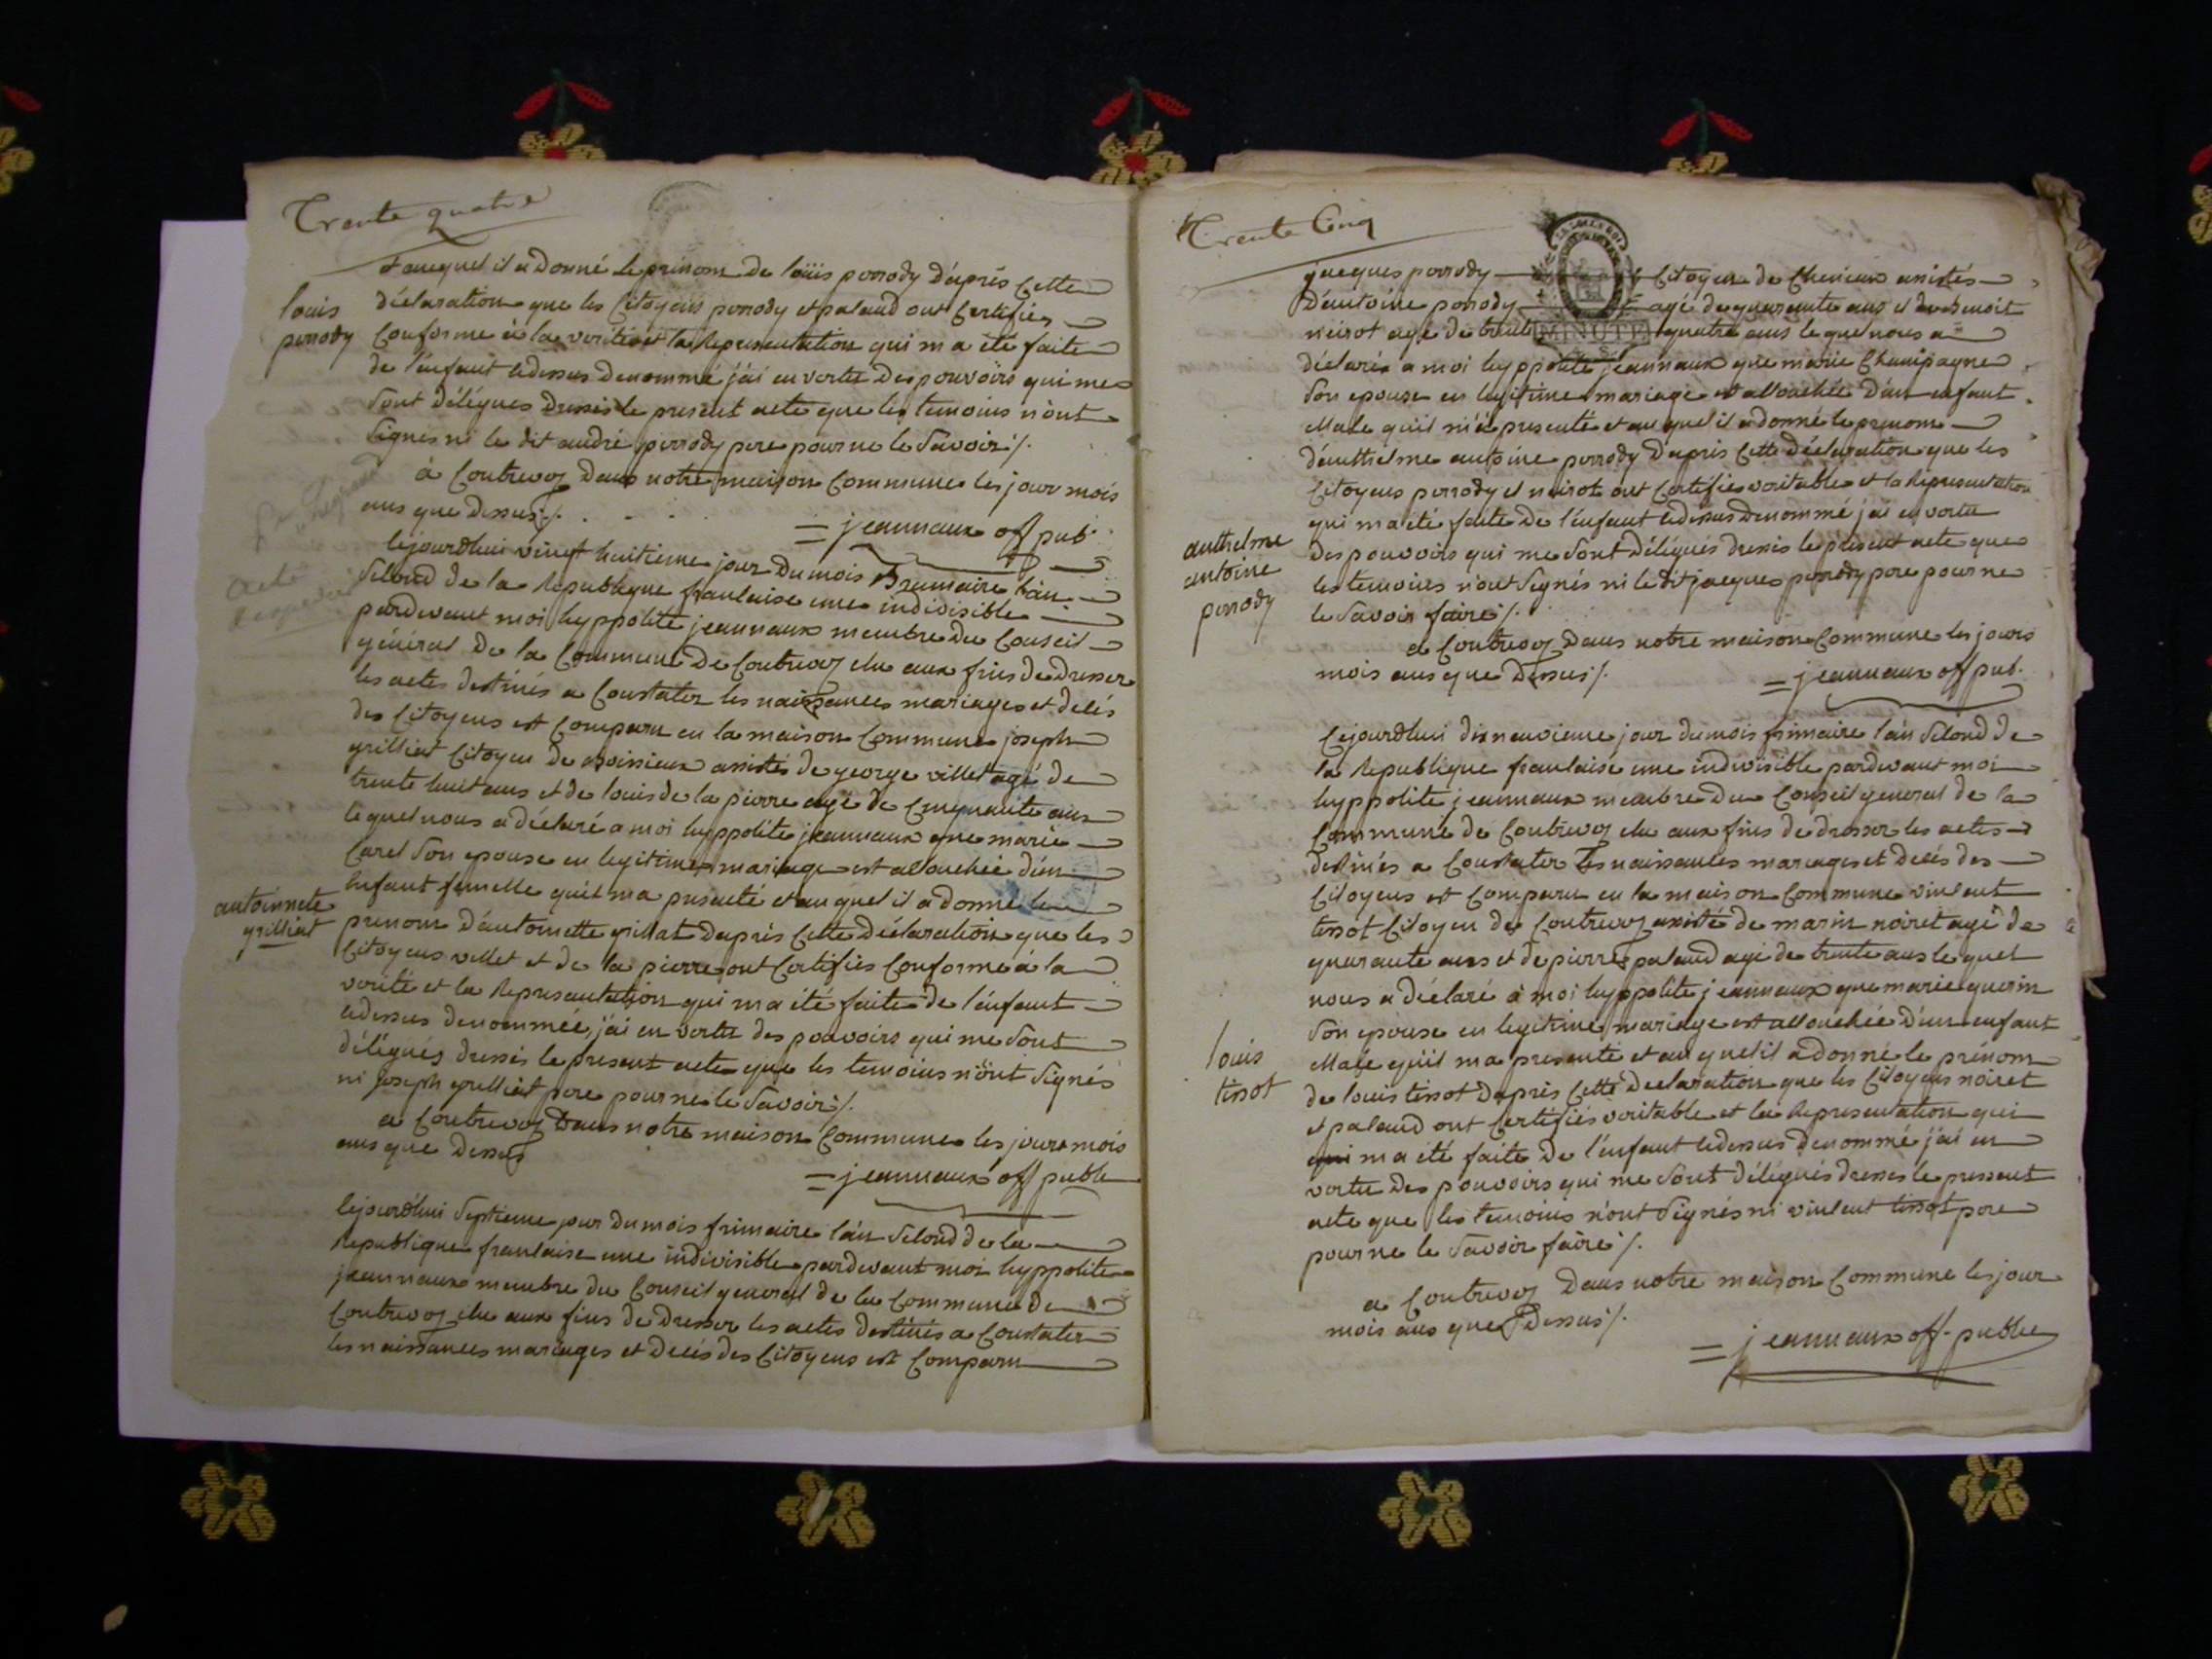 Trente quatre
auquel il a donné le prénom de loüis perrody d'après cette
louis
perrody
déclaration que les Citoyens perrody et palaud ont Certifiés
Conforme à la verité et la Representation qui m'a été faite
de l'enfant cidessus denommé j'ai en vertu des pouvoirs qui me
sont délégués dressé le present acte que les temoins n'ont
Signés ni le dit andré perrody pere pour ne le Savoir ./.
à Contrevoz dans notre maison Commune les jour mois
ans que dessus ./.
= jeannaux off pub
Cejourdhui vingt huitieme jour du mois Brumaire l'an
Second de la Republique francaise une indivisible
pardevant moi hyppolite jeannaux membre du Conseil
général de la Commune de Contrevoz elu aux fins de dresser
les actes destinés a Constater les naissances mariages et decés
des Citoyens est Comparu en la maison Commune joseph
grilliet Citoyen de boissieux assistés de george villet agé de
trente huit ans et de louis de la pierre agé de Cinquante ans
lequel nous a déclaré a moi hyppolite jeannaux que marie
Carel Son epouse en legitime mariage est accouchée d'un
Enfant femelle quil ma presenté et auquel il a donné le
antoinnete
grilliet
prenom d'antoinette grillat dapres Cette Déclaration que les
Citoyens villet et de la pierre ont Certifiés Conforme à la
verité et la Representation qui m'a été faite de l'enfant
cidessus denommée, j'ai en vertu des pouvoirs qui me Sont
délégués dressé le present acte que les temoins n'ont Signés
ni joseph grilliet pere pour ne le Savoir ./.
a Contrevoz Dans notre maison Commune les jour mois
ans que dessus
= jeannaux off publ
Cejourdhui Septieme jour du mois frimaire l'an Second de la
Republique francaise une indivisible pardevant moi hyppolite
jeannaux membre du Conseil general de la Commune de
Contrevoz elu aux fins de Dresser les actes destinés a Constater
les naissances mariages et decés des Citoyens est Comparu
Trente Cinq
jacques perrody Citoyen de Cheurieux assistés
D'antoine perrody agé de quarante ans et de benoit
neirot agé de trente quatre ans lequel nous a
MINUTE
déclaré a moi hyppolite jeannaux que marie Champagne
Son epouse en legitime mariage est accouchée d'un enfant
Male quil m'a presenté et auquel il a donné le prenom
d'anthelme antoine perrody D'apres Cette déclaration que les
Citoyens perrody et neirot ont Certifiés veritable et la Representation
qui m'a été faite de l'enfant cidessus denommé j'ai en vertu
anthelme
antoine
perrody
des pouvoirs qui me Sont délégués dressé le present acte que
les temoins n'ont Signés ni le dit jacques perrody pere pour ne
le Savoir faire ./.
a Contrevoz Dans notre maison Commune les jours
mois ans que Dessus ./.
= jeannaux off pub.
Cejourdhui dixneuvieme jour du mois frimaire l'an Second de
la Republique francaise une indivisible pardevant moi
hyppolite jeannaux membre du Conseil general de la
Commune de Contrevoz elu aux fins de dresser les actes
destinés a Constater les naissances mariages et decés des
Citoyens est Comparu en la maison Commune vincent
tissot Citoyen de Contrevoz assisté de marin noiret agé de
quarante ans et de pierre palaud agé de trente ans lequel
nous a déclaré à moi hyppolite jeannaux que marie guerin
Son epouse en legitime mariage est accouchée d'un enfant
louis
tissot
Male quil m'a presenté et auquel il a donné le prénom
de louis tissot Dapres Cette declaration que les Citoyens noiret
et palaud ont Certifiés veritable et la Representation qui
m'a été faite de l'enfant cidessus denommé j'ai en
vertu des pouvoirs qui me Sont délégués dressé le present
acte que les temoins n'ont Signés ni vincent tissot pere
pour ne le Savoir faire ./.
a Contrevoz Dans notre maison Commune les jour
mois ans que Dessus ./.
= jeannaux off. public